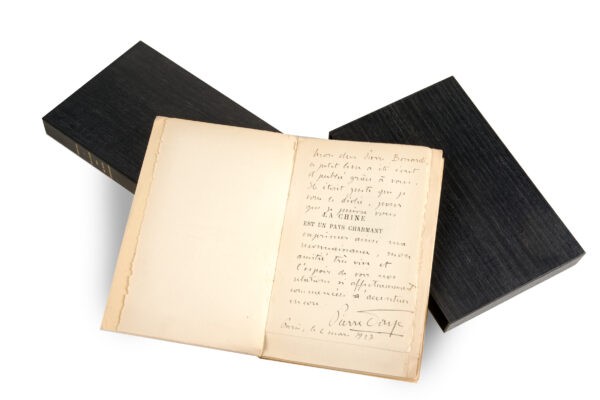 Mon cher Pierre Bonardi,
ce petit livre a été écrit
et publié grâce à vous.
Il était juste que je
vous le dédie, pour
que je puisse vous
LA CHINE
EST UN PAYS CHARMANT
exprimer ainsi ma
reconnaissance, mon
amitié très vive et
l'espoir de voir nos
relations si affectueusement
commencées s'accentuer
encore.
Pierre
Paris, le 2 mars